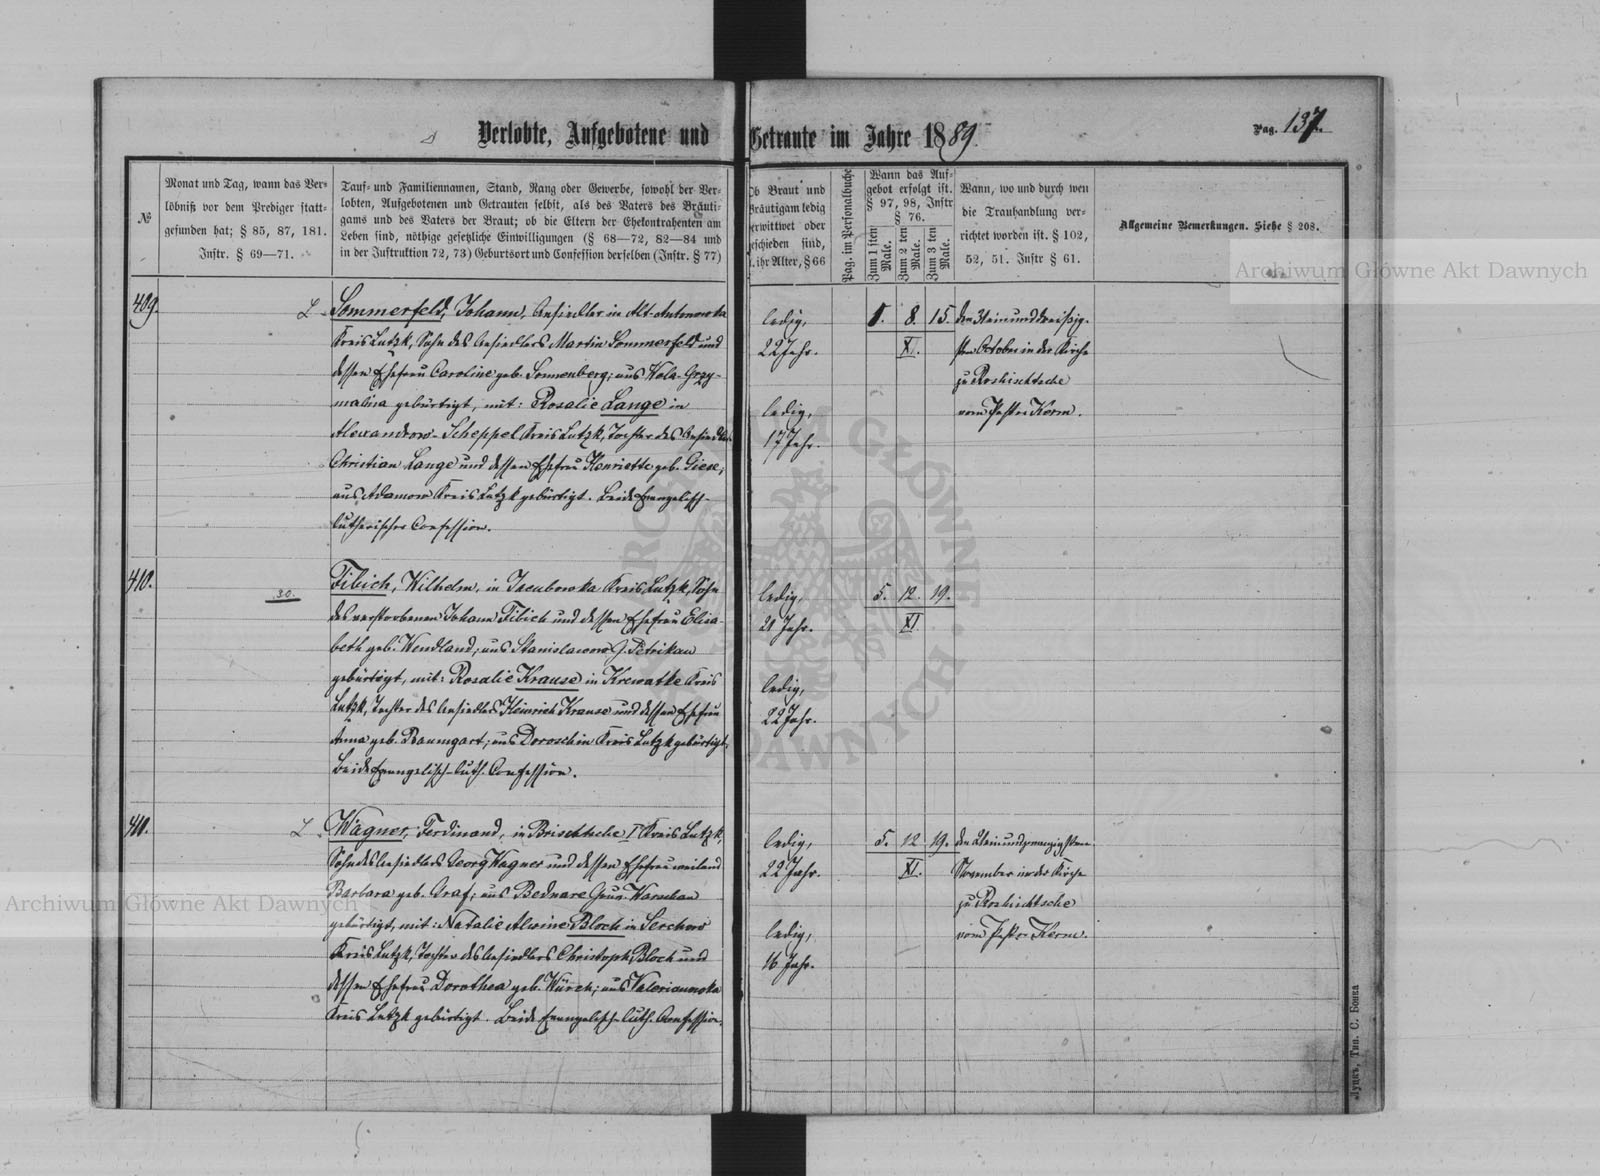 Verlobte, Aufgebotene und Getraute im Jahre 1889.
Pag. 137.
№
Monat und Tag, wann das Ver-
löbniß vor dem Prediger statt-
gefunden hat; § 85, 87, 181.
Instr. § 69—71.
Tauf- und Familiennamen, Stand, Rang oder Gewerbe, sowohl der Ver-
lobten, Aufgebotenen und Getrauten selbst, als des Vaters des Bräuti-
gams und des Vaters der Braut; ob die Eltern der Ehekontrahenten am
Leben sind, nöthige gesetzliche Einwilligungen (§ 68—72, 82—84 und
in der Instruktion 72, 73) Geburtsort und Confession derselben (Instr. § 77)
Ob Braut und
Bräutigam ledig
verwittwet oder
geschieden sind,
u. ihr Alter, § 66
Pag. im Personalbuche
Wann das Auf-
gebot erfolgt ist.
§ 97, 98, Instr
§ 76.
Zum 1 sten Male.
Zum 2 ten Male.
Zum 3 ten Male.
Wann, wo und durch wen
die Trauhandlung ver-
richtet worden ist. § 102,
52, 51. Instr § 61.
Allgemeine Bemerkungen. Siehe § 208.
409.
L
Sommerfeld, Johann, Ansiedler in Alt-Antonowka
Kreis Lutzk, Sohn des Ansiedlers Martin Sommerfeld und
dessen Ehefrau Caroline geb. Sonnenberg; aus Wola-Grzy-
malina gebürtigt, mit: Rosalie Lange in
Alexandrow-Scheppel Kreis Lutzk, Tochter des Ansiedlers
Christian Lange und dessen Ehefrau Henriette geb. Giese;
aus Adamow Kreis Lutzk gebürtigt. Beide Evangelisch-
lutherischer Confession.
ledig,
22 Jahr.
ledig,
17 Jahr.
1. 8. 15.
XI.
den Einunddreißig-
sten October in der Kirche
zu Roshischtsche
vom Pastor Kerm.
410.
30.
Fibich, Wilhelm, in Jacubowka Kreis Lutzk, Sohn
des verstorbenen Johann Fibich und dessen Ehefrau Elisa-
beth geb. Wendland; aus Stanislawow G. Petrikau
gebürtigt, mit: Rosalie Krause in Krewatke Kreis
Lutzk, Tochter des Ansiedlers Heinrich Krause und dessen Ehefrau
Anna geb. Baumgart; aus Doroschin Kreis Lutzk gebürtigt.
Beide Evangelisch-luth. Confession.
ledig,
21 Jahr.
ledig,
22 Jahr.
5. 12. 19.
XI
411.
L
Wagner, Ferdinand, in Brischtsche I Kreis Lutzk,
Sohn des Ansiedlers Georg Wagner und dessen Ehefrau weiland
Barbara geb. Graf; aus Bednare Gouv. Warschau
gebürtigt, mit: Natalie Alwine Bloch in Serchow
Kreis Lutzk, Tochter des Ansiedlers Christoph Bloch und
dessen Ehefrau Dorothea geb. Würch; aus Valerianowka
Kreis Lutzk gebürtigt. Beide Evangelisch-luth. Confession.
ledig,
22 Jahr.
ledig,
16 Jahr.
5. 12. 19.
XI.
den Einundzwanzigsten
November in der Kirche
zu Roshischtsche
vom Pastor Kerm.
Луцкъ, Тип. С. Бонка
Archiwum Główne Akt Dawnych
Archiwum Główne Akt Dawnych
ARCHIWUM GŁÓWNE AKT DAWNYCH